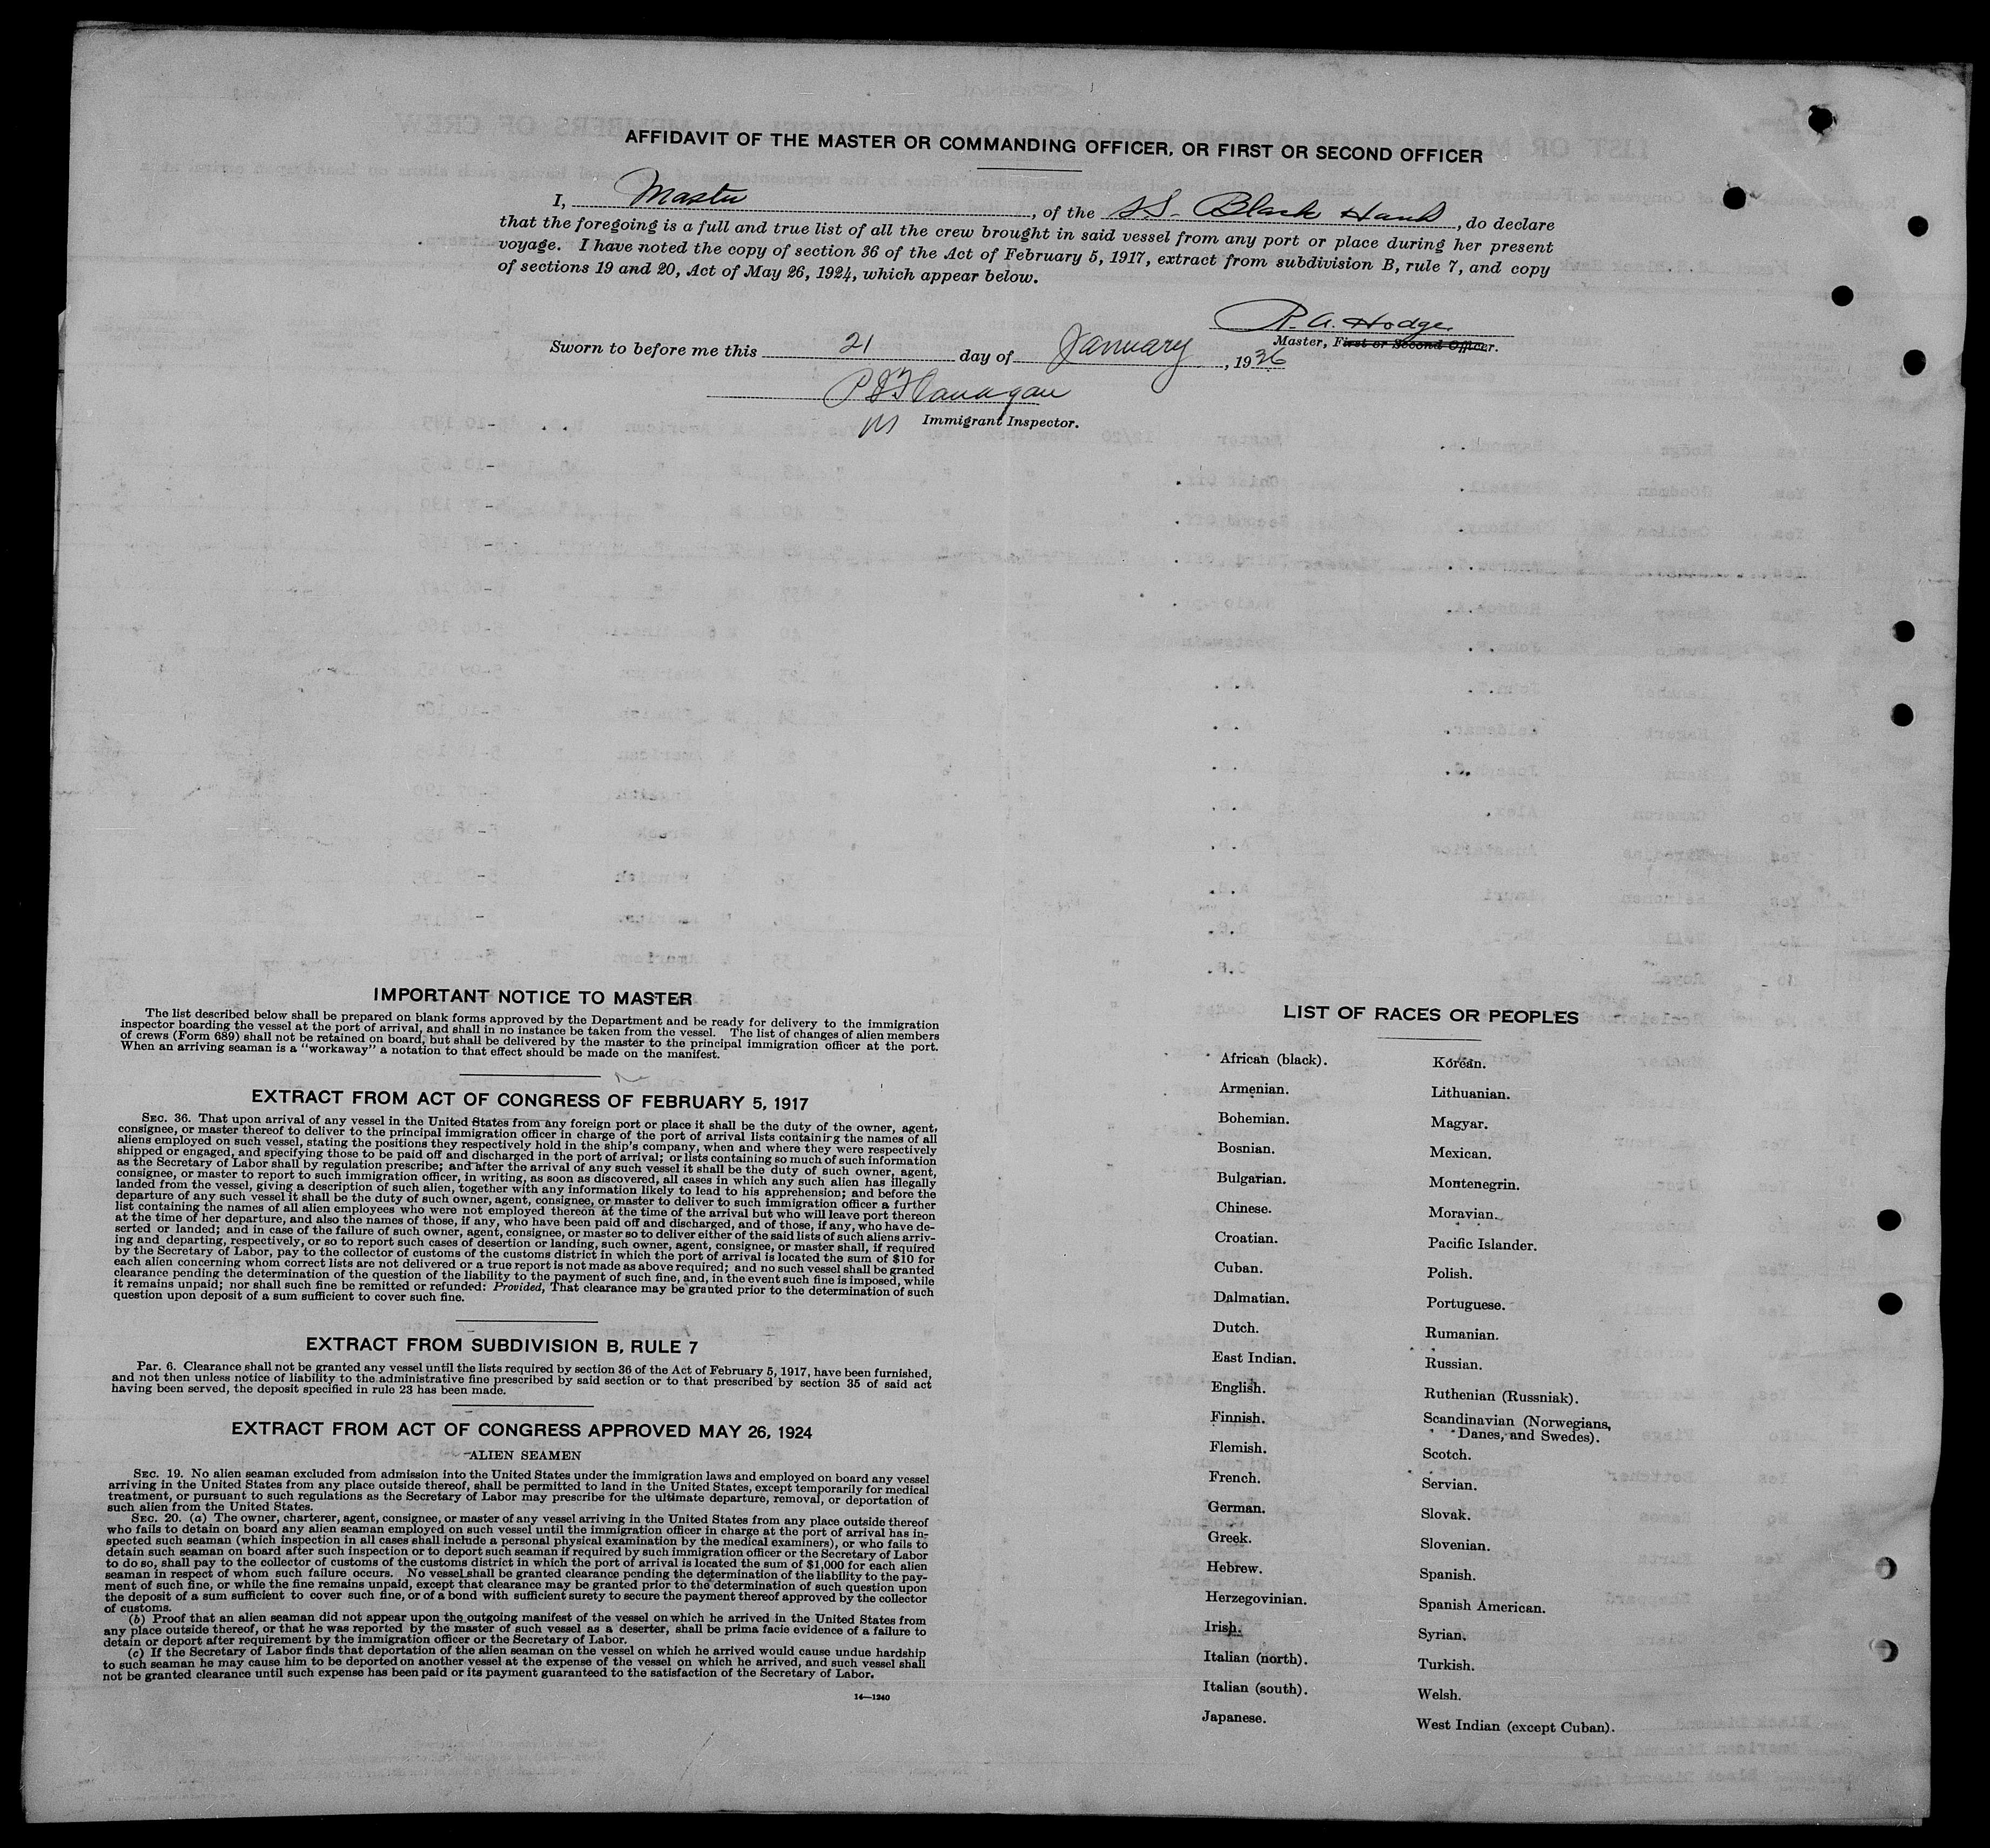 AFFIDAVIT OF THE MASTER OR COMMANDING OFFICER, OR FIRST OR SECOND OFFICER
I, Master, of the S.S. Black Hawk, do declare
that the foregoing is a full and true list of all the crew brought in said vessel from any port or place during her present
voyage. I have noted the copy of section 36 of the Act of February 5, 1917, extract from subdivision B, rule 7, and copy
of sections 19 and 20, Act of May 26, 1924, which appear below.
R. A. Hodge
Master, First or Second Officer.
Sworn to before me this 21 day of January, 1936
P J Flanagan
Immigrant Inspector.
IMPORTANT NOTICE TO MASTER
The list described below shall be prepared on blank forms approved by the Department and be ready for delivery to the immigration
inspector boarding the vessel at the port of arrival, and shall in no instance be taken from the vessel. The list of changes of alien members
of crews (Form 689) shall not be retained on board, but shall be delivered by the master to the principal immigration officer at the port.
When an arriving seaman is a "workaway" a notation to that effect should be made on the manifest.
EXTRACT FROM ACT OF CONGRESS OF FEBRUARY 5, 1917
SEC. 36. That upon arrival of any vessel in the United States from any foreign port or place it shall be the duty of the owner, agent,
consignee, or master thereof to deliver to the principal immigration officer in charge of the port of arrival lists containing the names of all
aliens employed on such vessel, stating the positions they respectively hold in the ship's company, when and where they were respectively
shipped or engaged, and specifying those to be paid off and discharged in the port of arrival; or lists containing so much of such information
as the Secretary of Labor shall by regulation prescribe; and after the arrival of any such vessel it shall be the duty of such owner, agent,
consignee, or master to report to such immigration officer, in writing, as soon as discovered, all cases in which any such alien has illegally
landed from the vessel, giving a description of such alien, together with any information likely to lead to his apprehension; and before the
departure of any such vessel it shall be the duty of such owner, agent, consignee, or master to deliver to such immigration officer a further
list containing the names of all alien employees who were not employed thereon at the time of the arrival but who will leave port thereon
at the time of her departure, and also the names of those, if any, who have been paid off and discharged, and of those, if any, who have de-
serted or landed; and in case of the failure of such owner, agent, consignee, or master so to deliver either of the said lists of such aliens arriv-
ing and departing, respectively, or so to report such cases of desertion or landing, such owner, agent, consignee, or master shall, if required
by the Secretary of Labor, pay to the collector of customs of the customs district in which the port of arrival is located the sum of $10 for
each alien concerning whom correct lists are not delivered or a true report is not made as above required; and no such vessel shall be granted
clearance pending the determination of the question of the liability to the payment of such fine, and, in the event such fine is imposed, while
it remains unpaid; nor shall such fine be remitted or refunded: Provided, That clearance may be granted prior to the determination of such
question upon deposit of a sum sufficient to cover such fine.
EXTRACT FROM SUBDIVISION B, RULE 7
Par. 6. Clearance shall not be granted any vessel until the lists required by section 36 of the Act of February 5, 1917, have been furnished,
and not then unless notice of liability to the administrative fine prescribed by said section or to that prescribed by section 35 of said act
having been served, the deposit specified in rule 23 has been made.
EXTRACT FROM ACT OF CONGRESS APPROVED MAY 26, 1924
ALIEN SEAMEN
SEC. 19. No alien seaman excluded from admission into the United States under the immigration laws and employed on board any vessel
arriving in the United States from any place outside thereof, shall be permitted to land in the United States, except temporarily for medical
treatment, or pursuant to such regulations as the Secretary of Labor may prescribe for the ultimate departure, removal, or deportation of
such alien from the United States.
SEC. 20. (a) The owner, charterer, agent, consignee, or master of any vessel arriving in the United States from any place outside thereof
who fails to detain on board any alien seaman employed on such vessel until the immigration officer in charge at the port of arrival has in-
spected such seaman (which inspection in all cases shall include a personal physical examination by the medical examiners), or who fails to
detain such seaman on board after such inspection or to deport such seaman if required by such immigration officer or the Secretary of Labor
to do so, shall pay to the collector of customs of the customs district in which the port of arrival is located the sum of $1,000 for each alien
seaman in respect of whom such failure occurs. No vessel shall be granted clearance pending the determination of the liability to the pay-
ment of such fine, or while the fine remains unpaid, except that clearance may be granted prior to the determination of such question upon
the deposit of a sum sufficient to cover such fine, or of a bond with sufficient surety to secure the payment thereof approved by the collector
of customs.
(b) Proof that an alien seaman did not appear upon the outgoing manifest of the vessel on which he arrived in the United States from
any place outside thereof, or that he was reported by the master of such vessel as a deserter, shall be prima facie evidence of a failure to
detain or deport after requirement by the immigration officer or the Secretary of Labor.
(c) If the Secretary of Labor finds that deportation of the alien seaman on the vessel on which he arrived would cause undue hardship
to such seaman he may cause him to be deported on another vessel at the expense of the vessel on which he arrived, and such vessel shall
not be granted clearance until such expense has been paid or its payment guaranteed to the satisfaction of the Secretary of Labor.
14—1240
LIST OF RACES OR PEOPLES
African (black).
Armenian.
Bohemian.
Bosnian.
Bulgarian.
Chinese.
Croatian.
Cuban.
Dalmatian.
Dutch.
East Indian.
English.
Finnish.
Flemish.
French.
German.
Greek.
Hebrew.
Herzegovinian.
Irish.
Italian (north).
Italian (south).
Japanese.
Korean.
Lithuanian.
Magyar.
Mexican.
Montenegrin.
Moravian.
Pacific Islander.
Polish.
Portuguese.
Rumanian.
Russian.
Ruthenian (Russniak).
Scandinavian (Norwegians,
Danes, and Swedes).
Scotch.
Servian.
Slovak.
Slovenian.
Spanish.
Spanish American.
Syrian.
Turkish.
Welsh.
West Indian (except Cuban).